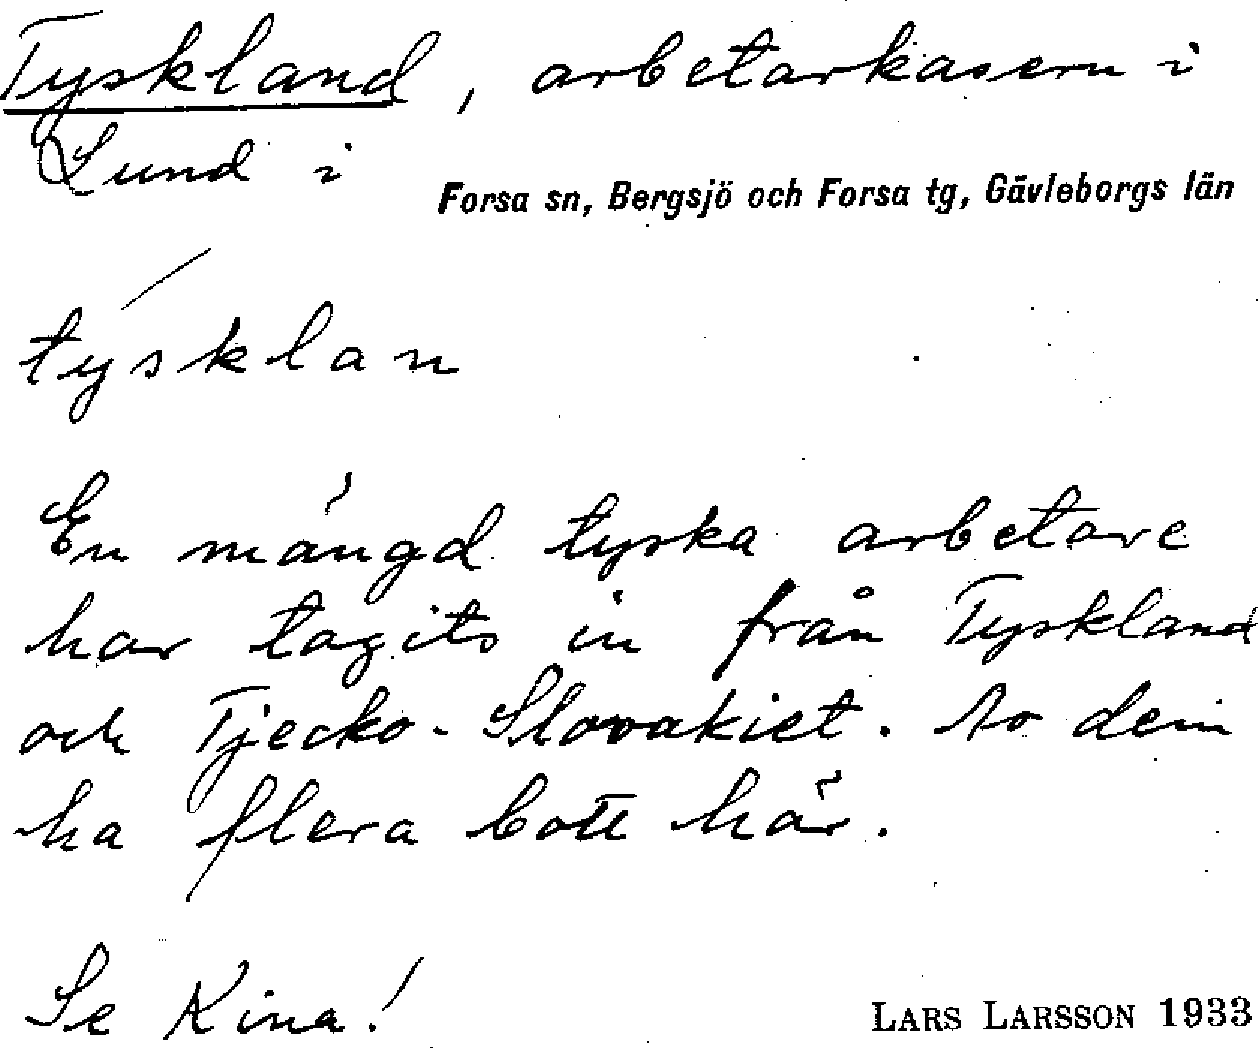 Tyskland, arbetarkasern i
Lund i
Forsa sn, Bergsjö och Forsa tg, Gävleborgs län
týsklan
En mängd tyska arbetare
har tagits in från Tyskland
och Tjecko-Slovakiet. Av dem
ha flera bott här.
Se Kina!
LARS LARSSON 1933